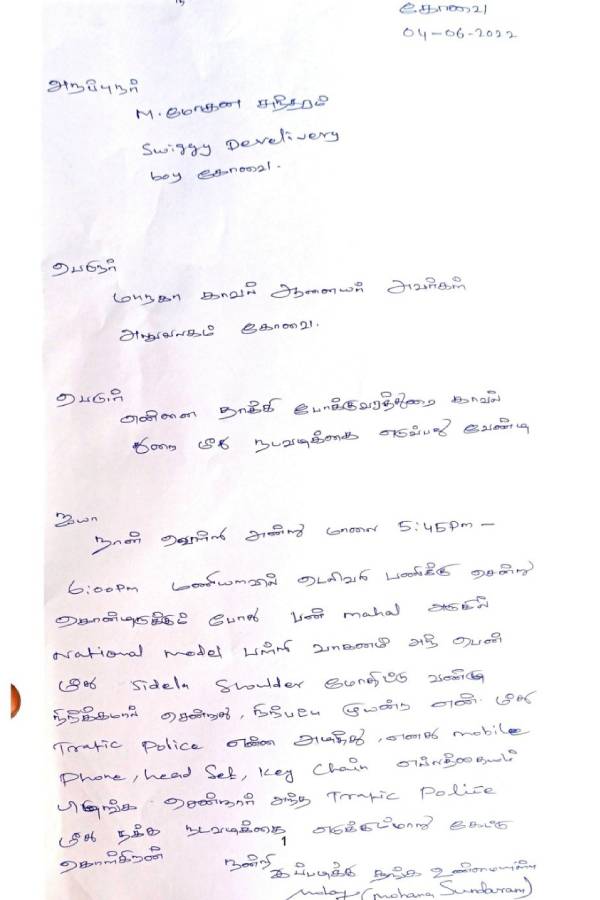 கோவை
04-06-2022
அநுப்புநர்
M. மோகன சுந்தரம்
Swiggy Develivery
boy கோவை.
பெருநர்
மாநகர காவல் ஆணையர் அவர்கள்
அலுவலகம் கோவை.
என்னை தாக்கி போக்குவரத்துறை காவல்
துறை மீது நடவடிக்கை எடுப்பது வேண்டி
ஐயா
நான் அன்று மாலை 5:45pm -
6:00pm மணியளவில் டெலிவரி பணிக்கு சென்று
கொண்டிருக்கும் போது பண் mahal அருகில்
National model பள்ளி வாகனம் பெண்
மீது Sidela Shoulder மோதிட்டு வண்டி
நிற்க்காமல் சென்றது, முயன்ற என் மீது
Traffic Police என்னை அடித்து, எனது mobile
Phone, head Set, key Chain எல்லத்தையும்
பிடுங்கி சென்றார் அந்த Traffic Police
மீது தக்க நடவடிக்கை எடுக்கும்மாறு கேட்டு
கொள்கிறேன் நன்றி
1
இப்படிக்கு தங்க உண்மையுள்ள
(Mohana Sundaram)